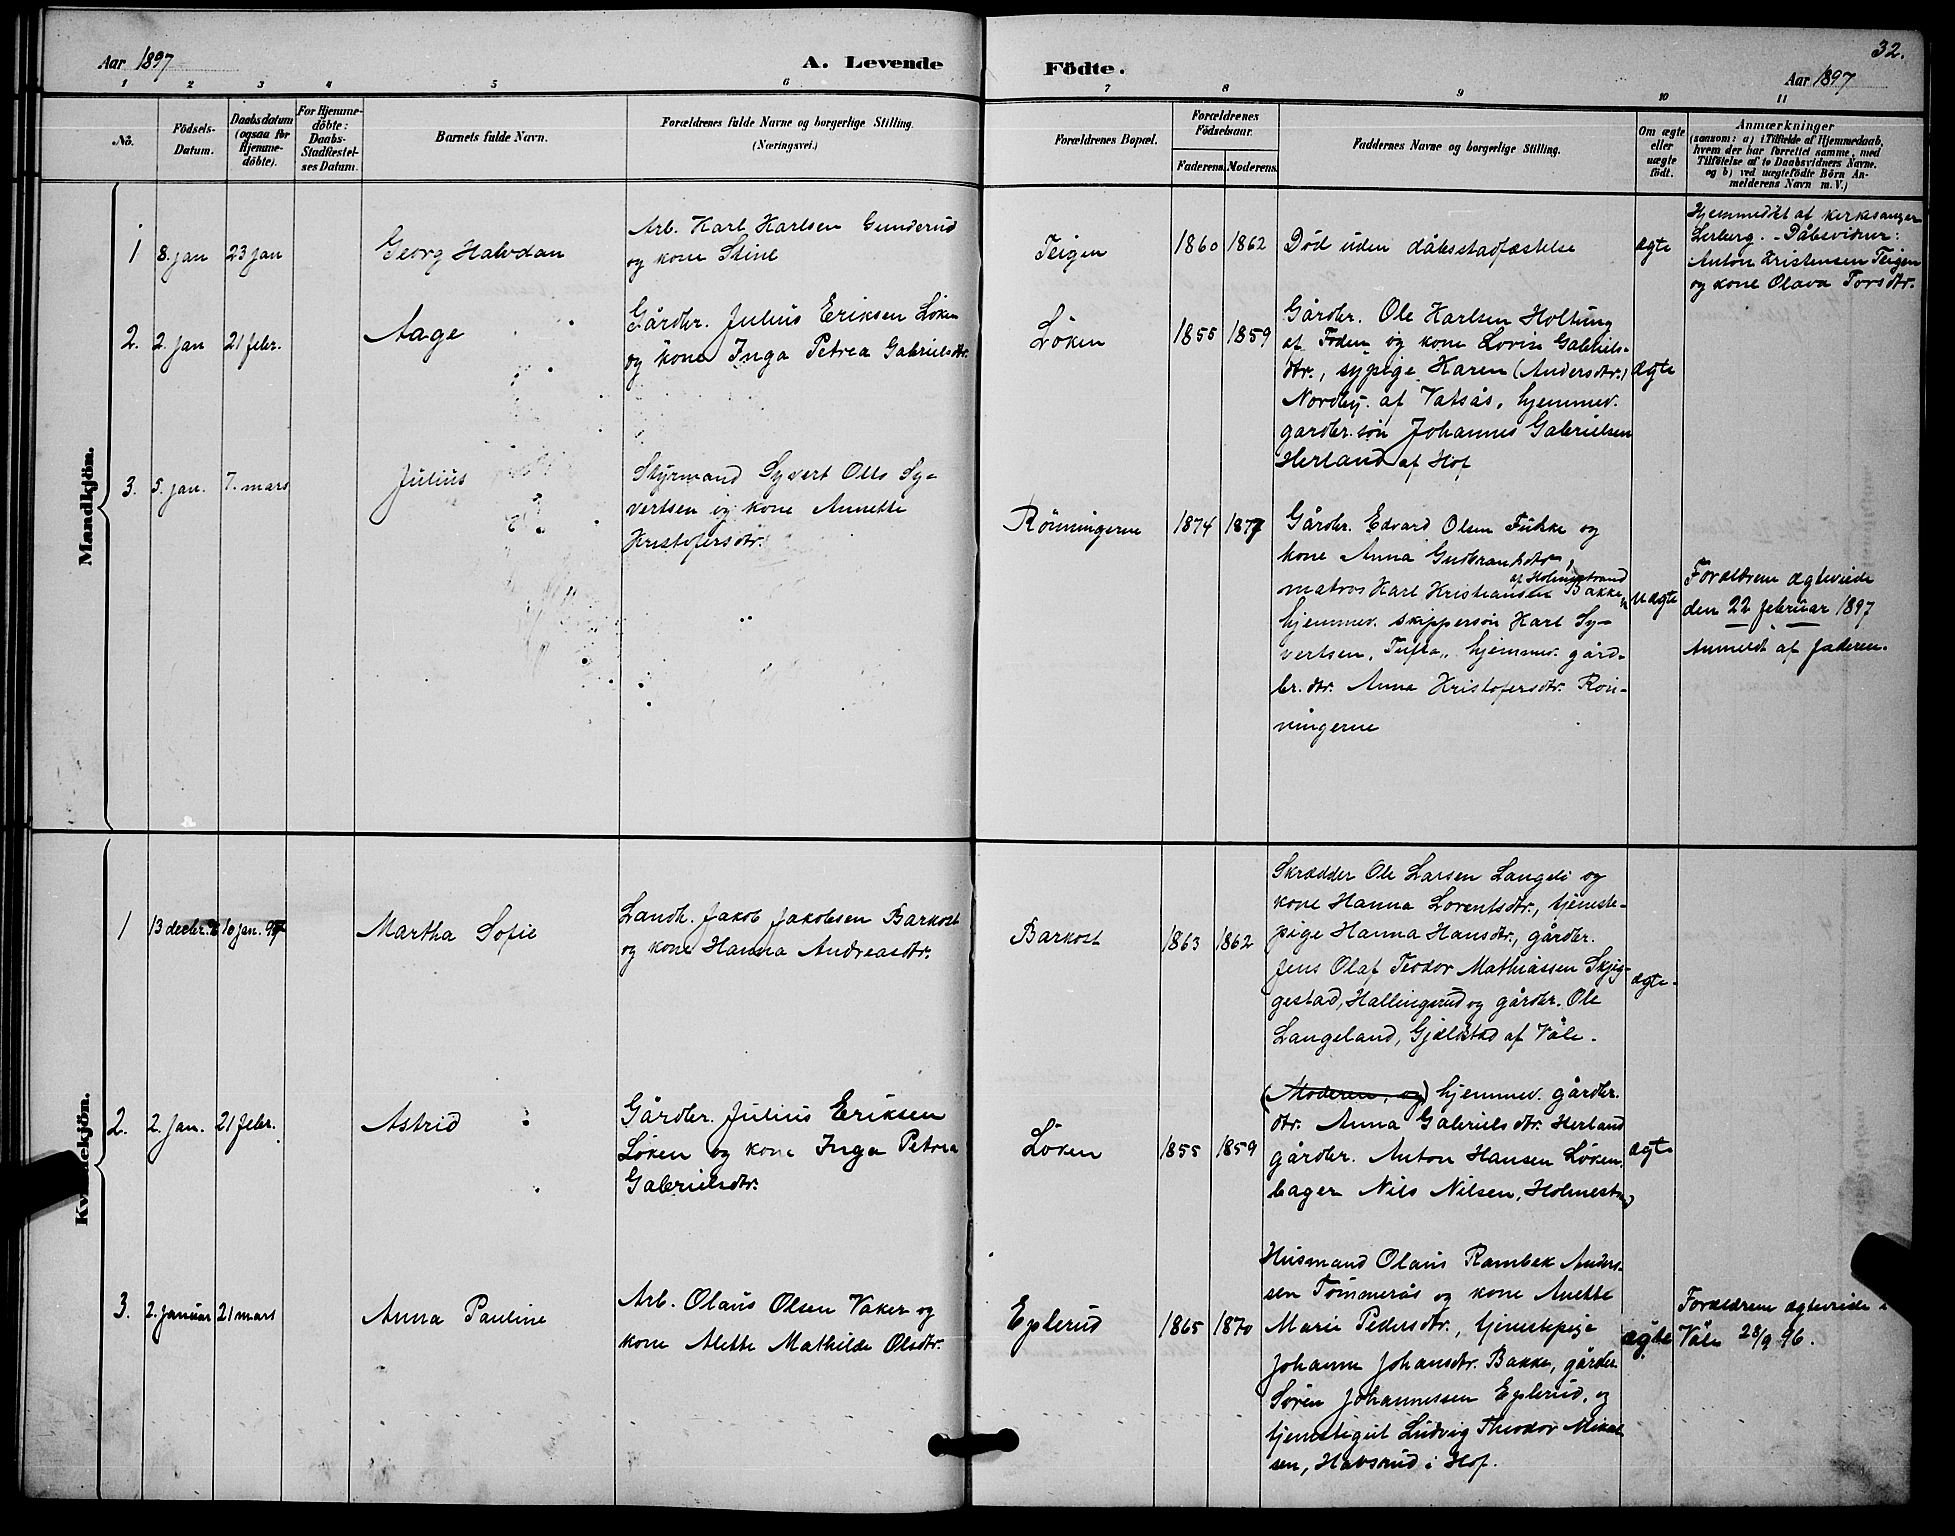 Aar 1897
A. Levende
Födte.
32.
Aar 1897
1 2 3 4 5 6 7 8 9 10 11
No.
Födsels-
Datum.
Daabsdatum
(ogsaa for
Hjemme-
döbte).
For Hjemme-
döbte:
Daabs-
Stadfæstel-
ses Datum.
Barnets fulde Navn.
Forældrenes fulde Navne og borgerlige Stilling.
(Næringsvei.)
Forældrenes Bopæl.
Forældrenes
Födselsaar.
Faderens. Moderens.
Faddernes Navne og borgerlige Stilling.
Om ægte
eller
uægte
født.
Anmærkninger
(saasom: a) i Tilfælde af Hjemmedaab,
hvem der har forrettet samme, med
Tilföielse af to Daabsvidners Navne,
og b) ved uægtefödte Börn An-
melderens Navn m. V.)
Mandkjön.
1
8. jan
23 jan
Georg Halvdan
Arb. Karl Karlsen Gunderud
og kone Stine
Teigen
1860
1862
Død uden dåbsstadfæstelse
ægte
Hjemmedøbt af kirkesanger
Lerberg. - Dåbsvidner:
Anton Kristensen Teigen
og kone Olava Torsdtr.
2.
2. jan
21 febr.
Aage
Gårdbr. Julius Eriksen Løken
og kone Inga Petrea Gabrielsdtr.
Løken
1855
1859
Gårdbr. Ole Karlsen Holtung
af Foden og kone Lovise Gabriels-
dtr., sypige Karen (Andersdtr.)
Nordby af Vatsås, hjemmev.
gardbr.søn Johannes Gabrielsen
Herland af Hof
ægte
3.
5. jan.
7. mars
Julius
Styrmand Syvert Olls Sy-
vertsen og kone Annette
Kristofersdtr.
Rönningerne
1874
1877
Gårdbr. Edvard Olsen Fukke og
kone Anna Gudbrandsdtr.,
matros Karl Kristiansen Bakke
af Holmestrand
hjemmev. skippersøn Karl Sy-
vertsen, Tufta, hjemmev. gård-
br.dtr. Anna Kristofersdtr. Rön-
ningerne
uægte
Forældrene ægteviede
den 22 februar 1897
Anmeldt af faderen.
Kvindekjön.
1
13 decbr. 96
10 jan. 97
Martha Sofie
Landh. Jakob Jakobsen Barkost
og kone Hanna Andreasdtr.
Barkost
1863
1862
Skrædder Ole Larsen Langeli og
kone Hanna Lorentsdtr., tjeneste-
pige Hanna Hansdtr., gårdbr.
Jens Olaf Teodor Mathiassen Skjeg-
gestad, Hallingerud og gårdbr. Ole
Langeland, Gjælstad af Våle.
ægte.
2.
2. Jan.
21 febr.
Astrid
Gårdbr. Julius Eriksen
Løken og kone Inga Petrea
Gabrielsdtr.
Løken
1855
1859
(Moderen, og) hjemmev. gårdbr.
dtr. Anna Gabrielsdtr. Herland
gårdbr. Anton Hansen Løken
bager Nils Nilsen, Holmestr.
ægte
3.
2. januar
21 mars
Anna Pauline
Arb. Olaus Olsen Vaker og
kone Alette Mathilde Olsdtr.
Eplerud
1865
1870
Husmand Olaus Rambek Anders-
sen Tommerås og kone Anette
Marie Pedersdtr., tjenestpige
Johanne Johansdtr. Bakke, gårdbr.
Sören Johannessen Eplerud, og
tjenestegut Ludvig Theodor Mikal-
sen, Habsrud i Hof.
ægte
Forældrene ægteviede i
Våle 28/9 96.